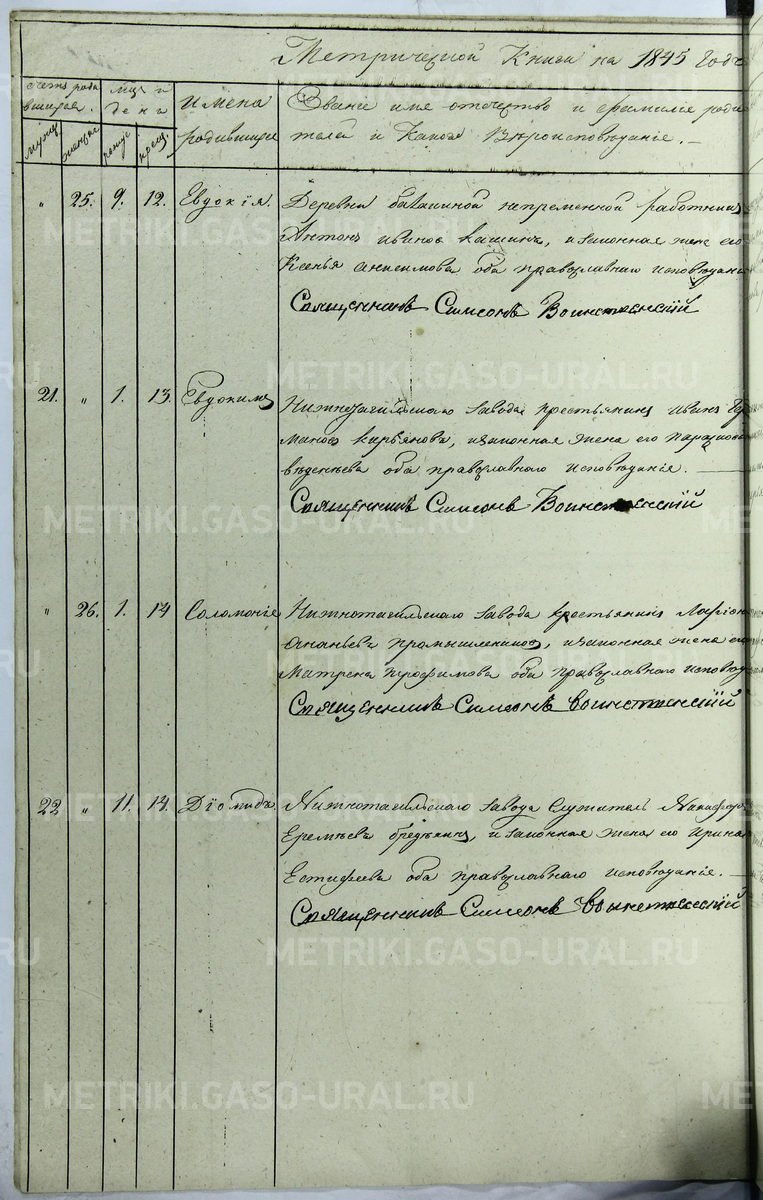 Метрической Книги на 1845 Годъ
Счетъ роди
вшихся.
Мцъ и
дени
имена
родившихся
Звание имя отечество и фамилие роди
телей и Какого Вѣроисповѣдание. –
мужес
женска
рожде
крещ
" 25. 9. 12. Евдокiя. Деревни непременной работникъ
Антонъ иванов кашинъ, и законная жена его
Ксенья анисимова оба православнаго исповѣдания
Священникъ Симеонъ Воинственскiй
21. " 1. 13. Евдокимъ
Нижнотагильскаго завода крестьянинъ иванъ Гер
манов кирьянова, и законная жена его
оба православнаго исповѣдание.
Священникъ Симеонъ Воинственскiй
" 26. 1. 14 Соломонiе Нижнотагильскаго завода крестьянинъ Ларiон
Ананьевъ промышлениковъ, и законная жена его
Матрена трофимова оба православнаго исповѣд
Священникъ Симеонъ Воинственскiй
22 " 11. 14. Дiомидъ. Нижнотагильскаго завода служитель Никифоръ
Еремѣевъ бредьгинъ, и законная жена его ирина
Естифеева оба православнаго исповѣдание.
Священникъ Симеонъ Воинственскiй
METRIKI.GASO-URAL.RU